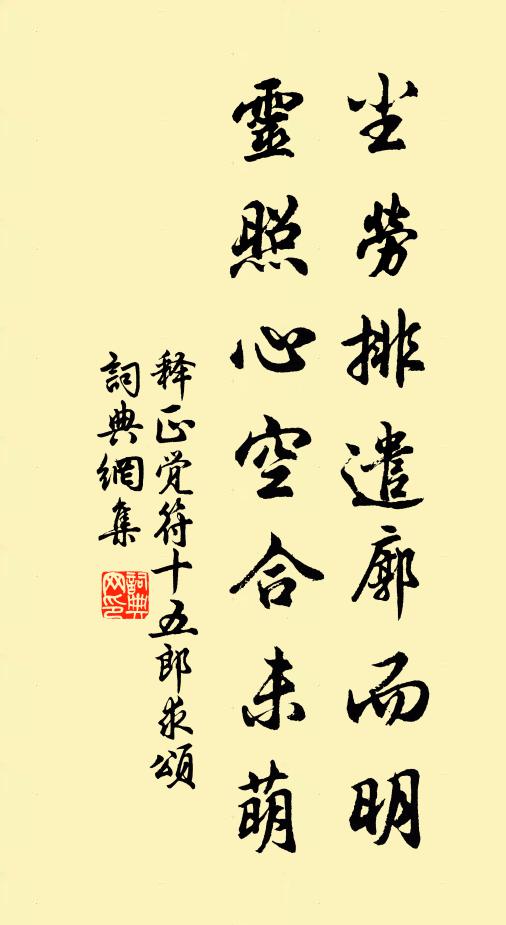 尘劳排遣廓而明
靈照心空合未萌
释正觉符十五郎求頌
詞典網集
詞典网印